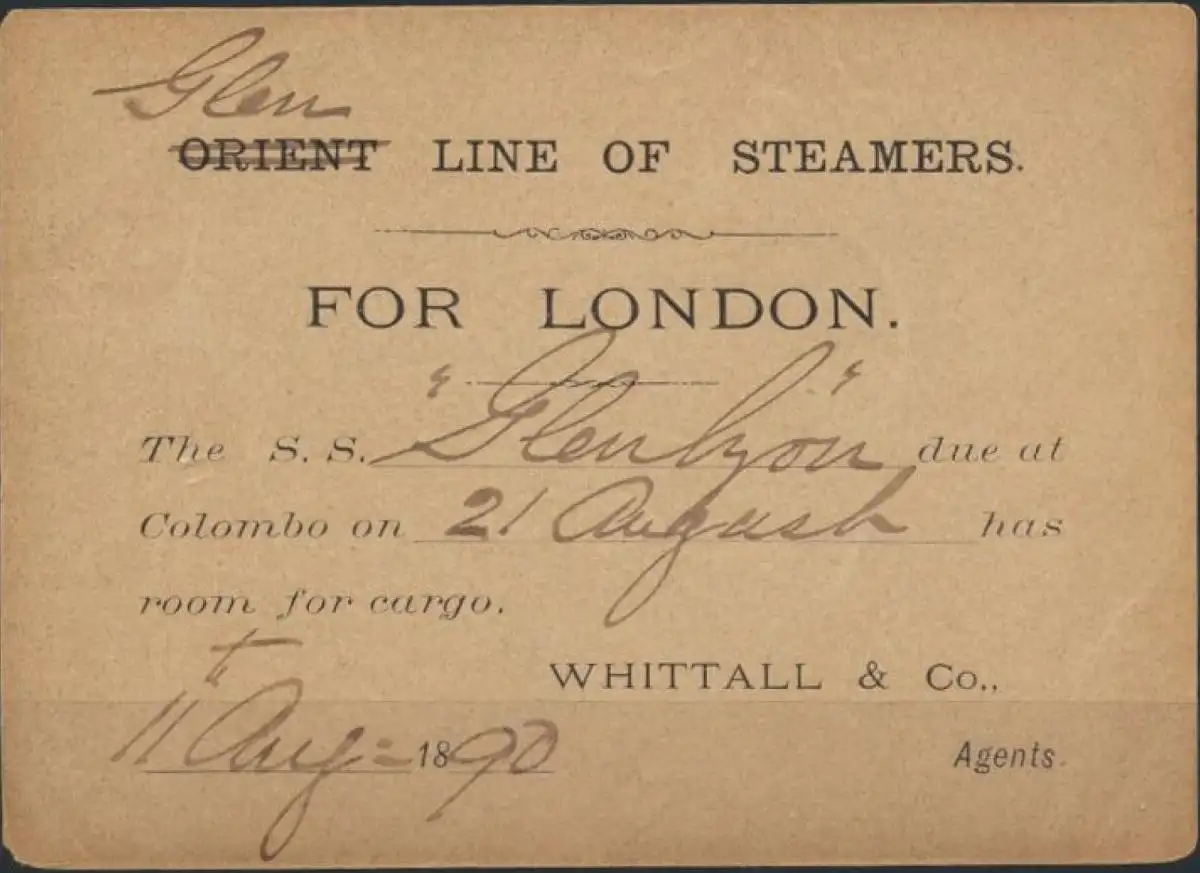 Glen
ORIENT LINE OF STEAMERS.
FOR LONDON.
The S. S. "Glenlyon" due at
Colombo on 21 August has
room for cargo.
WHITTALL & Co.,
11th Aug = 1890 Agents.